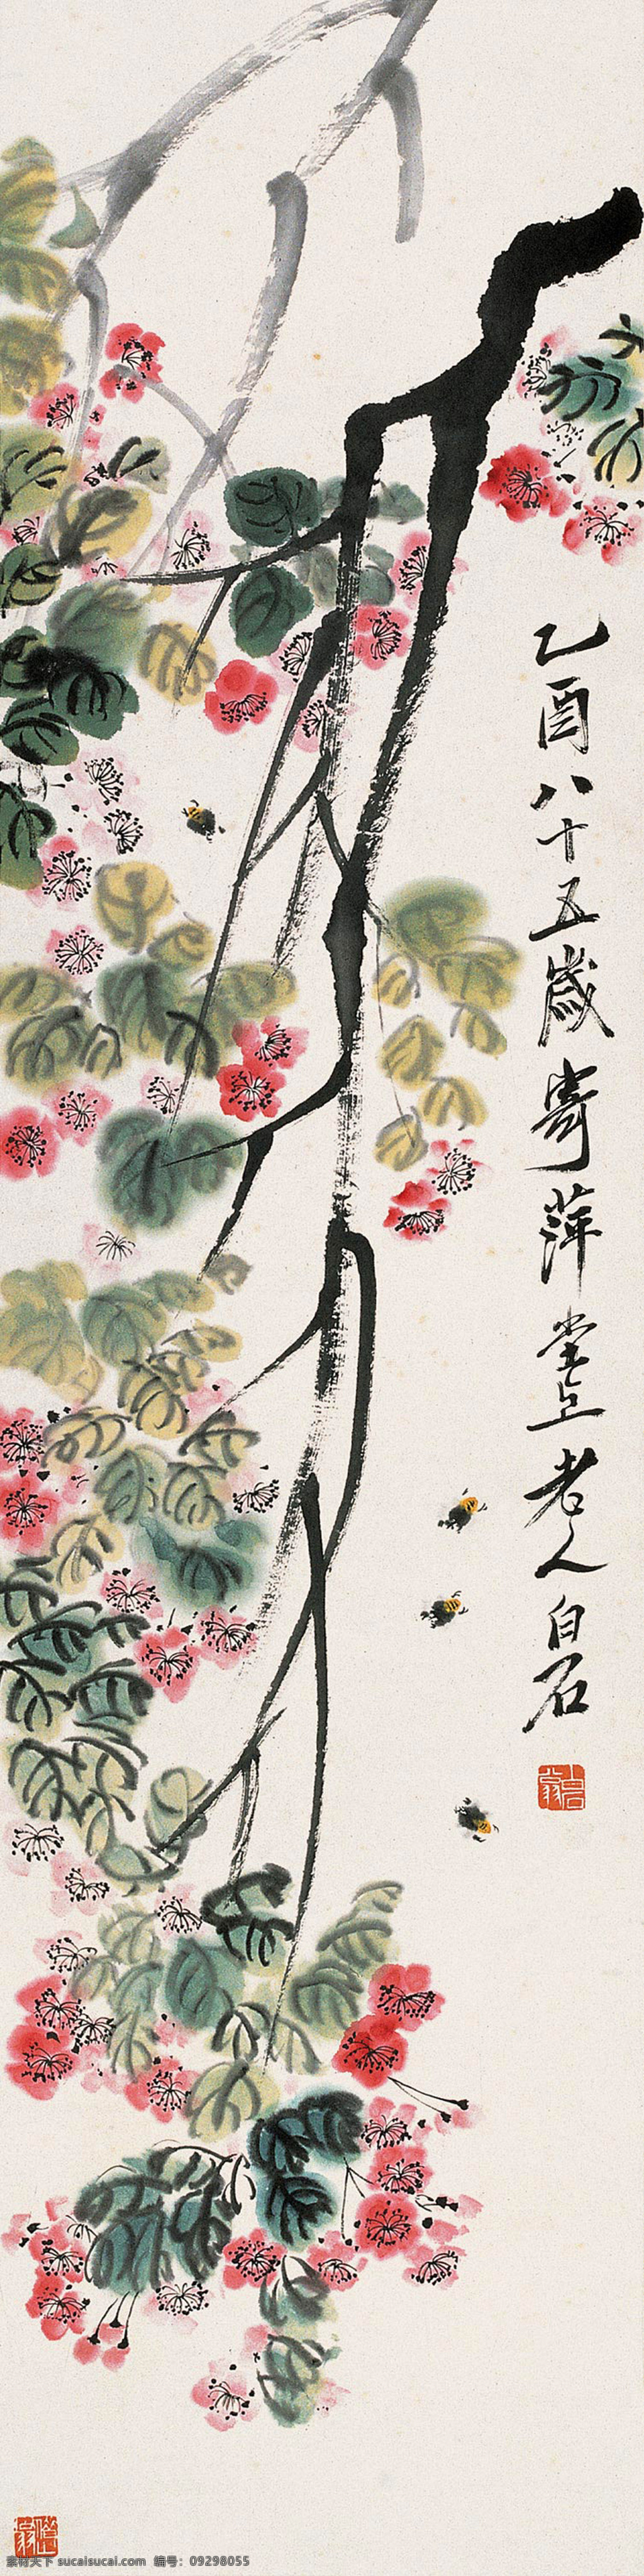 乙酉八十五歲寄萍堂上老人白石
白石翁
素材天下 sucaisucai.com 编号：09298055